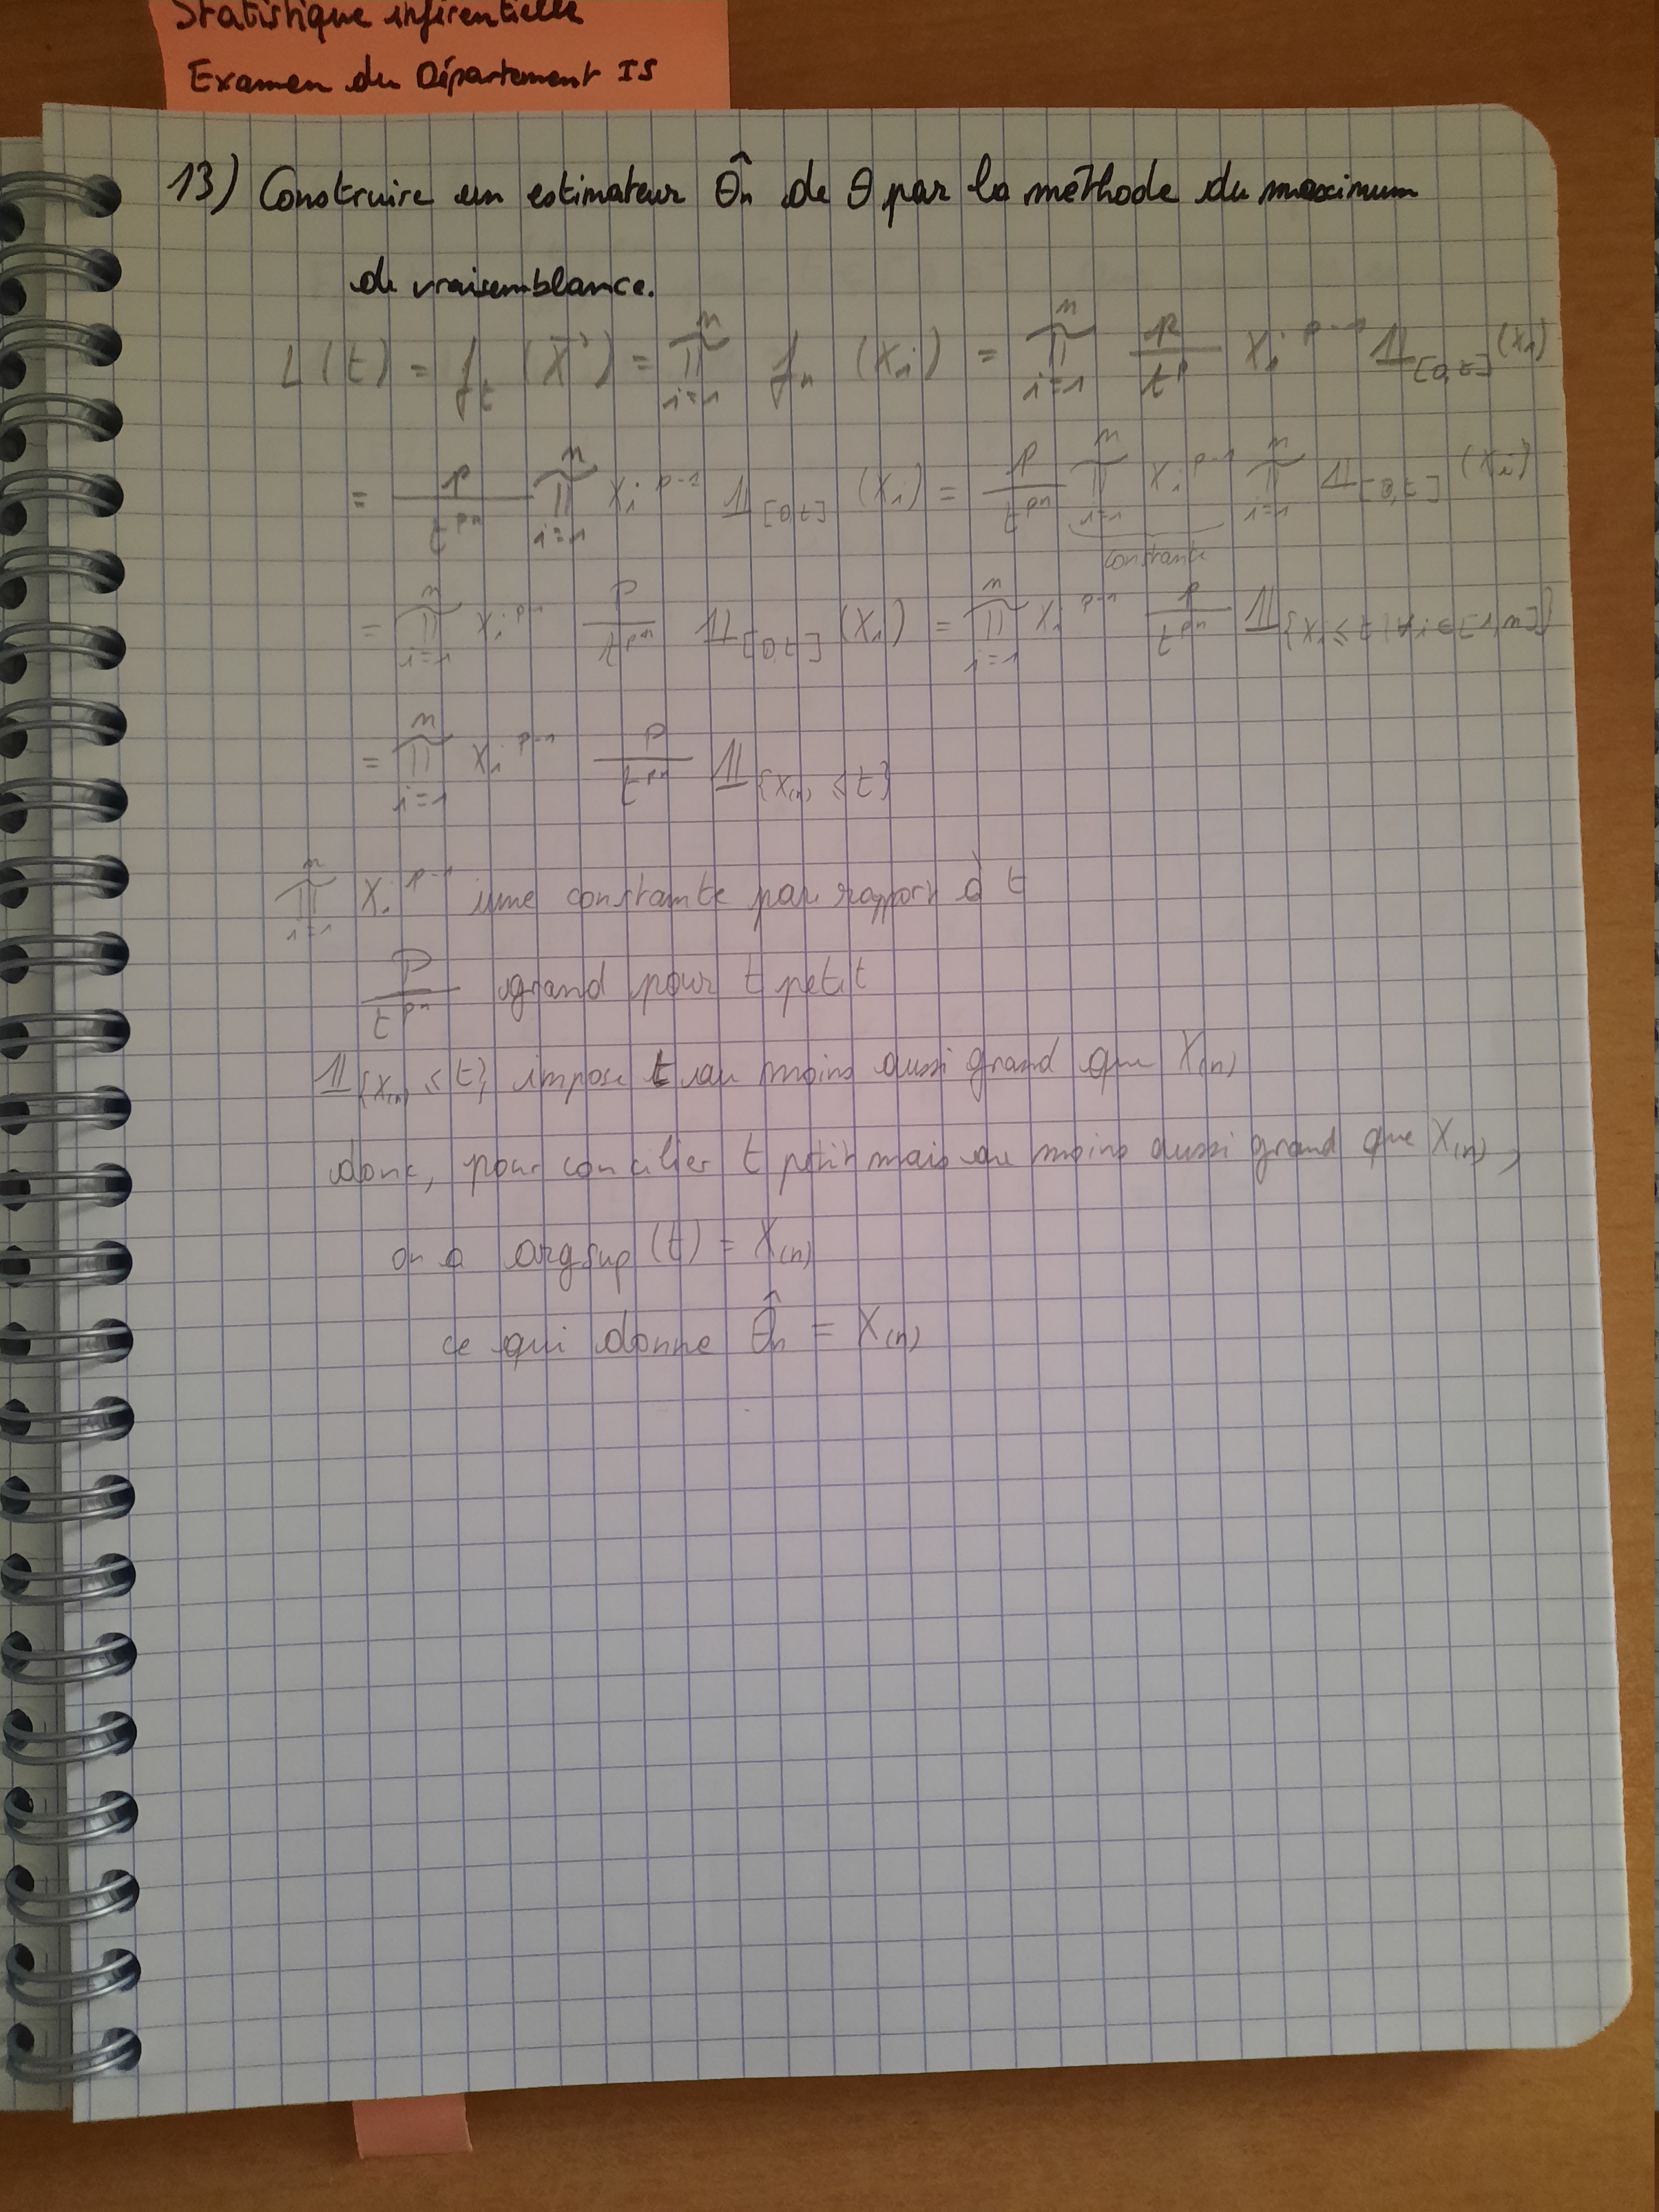 Statistique inférentielle
Examen du Département IS
13) Construire un estimateur θ̂n de θ par la méthode du maximum
de vraisemblance.
L(t) = f_t (X⃗) = ∏_{i=1}^{n} f_n (X_i) = ∏_{i=1}^{n} p/t^p X_i^{p-1} 𝟙_{[0,t]} (X_i)
= p/t^{pn} ∏_{i=1}^{n} X_i^{p-1} 𝟙_{[0,t]} (X_i) = p/t^{pn} ∏_{i=1}^{n} X_i^{p-1} ∏_{i=1}^{n} 𝟙_{[0,t]} (X_i)
constante
= ∏_{i=1}^{n} X_i^{p-1} p/t^{pn} 𝟙_{[0,t]} (X_i) = ∏_{i=1}^{n} X_i^{p-1} p/t^{pn} 𝟙_{{X_i ≤ t, ∀i∈[1,n]}}
= ∏_{i=1}^{n} X_i^{p-1} p/t^{pn} 𝟙_{{X_(n) ≤ t}}
∏_{i=1}^{n} X_i^{p-1} une constante par rapport à t
p/t^{pn} grand pour t petit
𝟙_{{X_(n) ≤ t}} impose t au moins aussi grand que X_(n)
donc, pour concilier t petit mais au moins aussi grand que X_(n),
on a argsup (t) = X_(n)
ce qui donne θ̂n = X_(n)